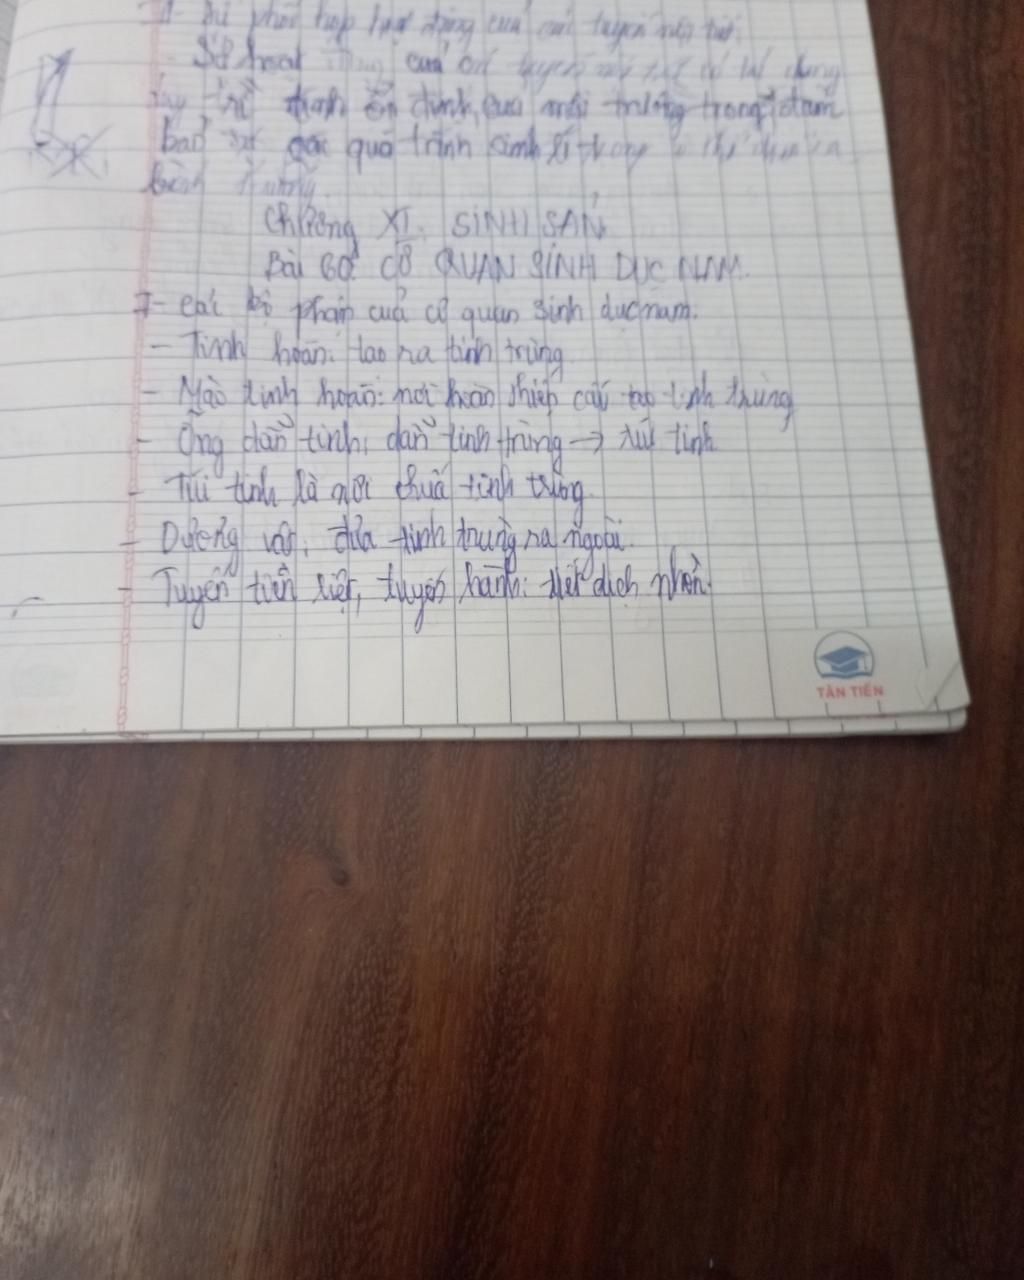 II- Sự phối hợp hoạt động của các tuyến nội tiết.
Sự hoạt động của các tuyến nội tiết có tác dụng
duy trì tính ổn định của môi trường trong đảm
bảo các quá trình sinh lí trong cơ thể
bình thường.
Chương XI. SINH SẢN
Bài 60: CƠ QUAN SINH DỤC NAM.
I- Các bộ phận của cơ quan sinh dục nam.
- Tinh hoàn: tạo ra tinh trùng
- Mào tinh hoàn: nơi hoàn thiện cấu tạo tinh trùng
- Ống dẫn tinh: dẫn tinh trùng → túi tinh
- Túi tinh là nơi chứa tinh trùng
- Dương vật: đưa tinh trùng ra ngoài.
- Tuyến tiền liệt, tuyến hành: tiết dịch nhờn.
TÂN TIẾN